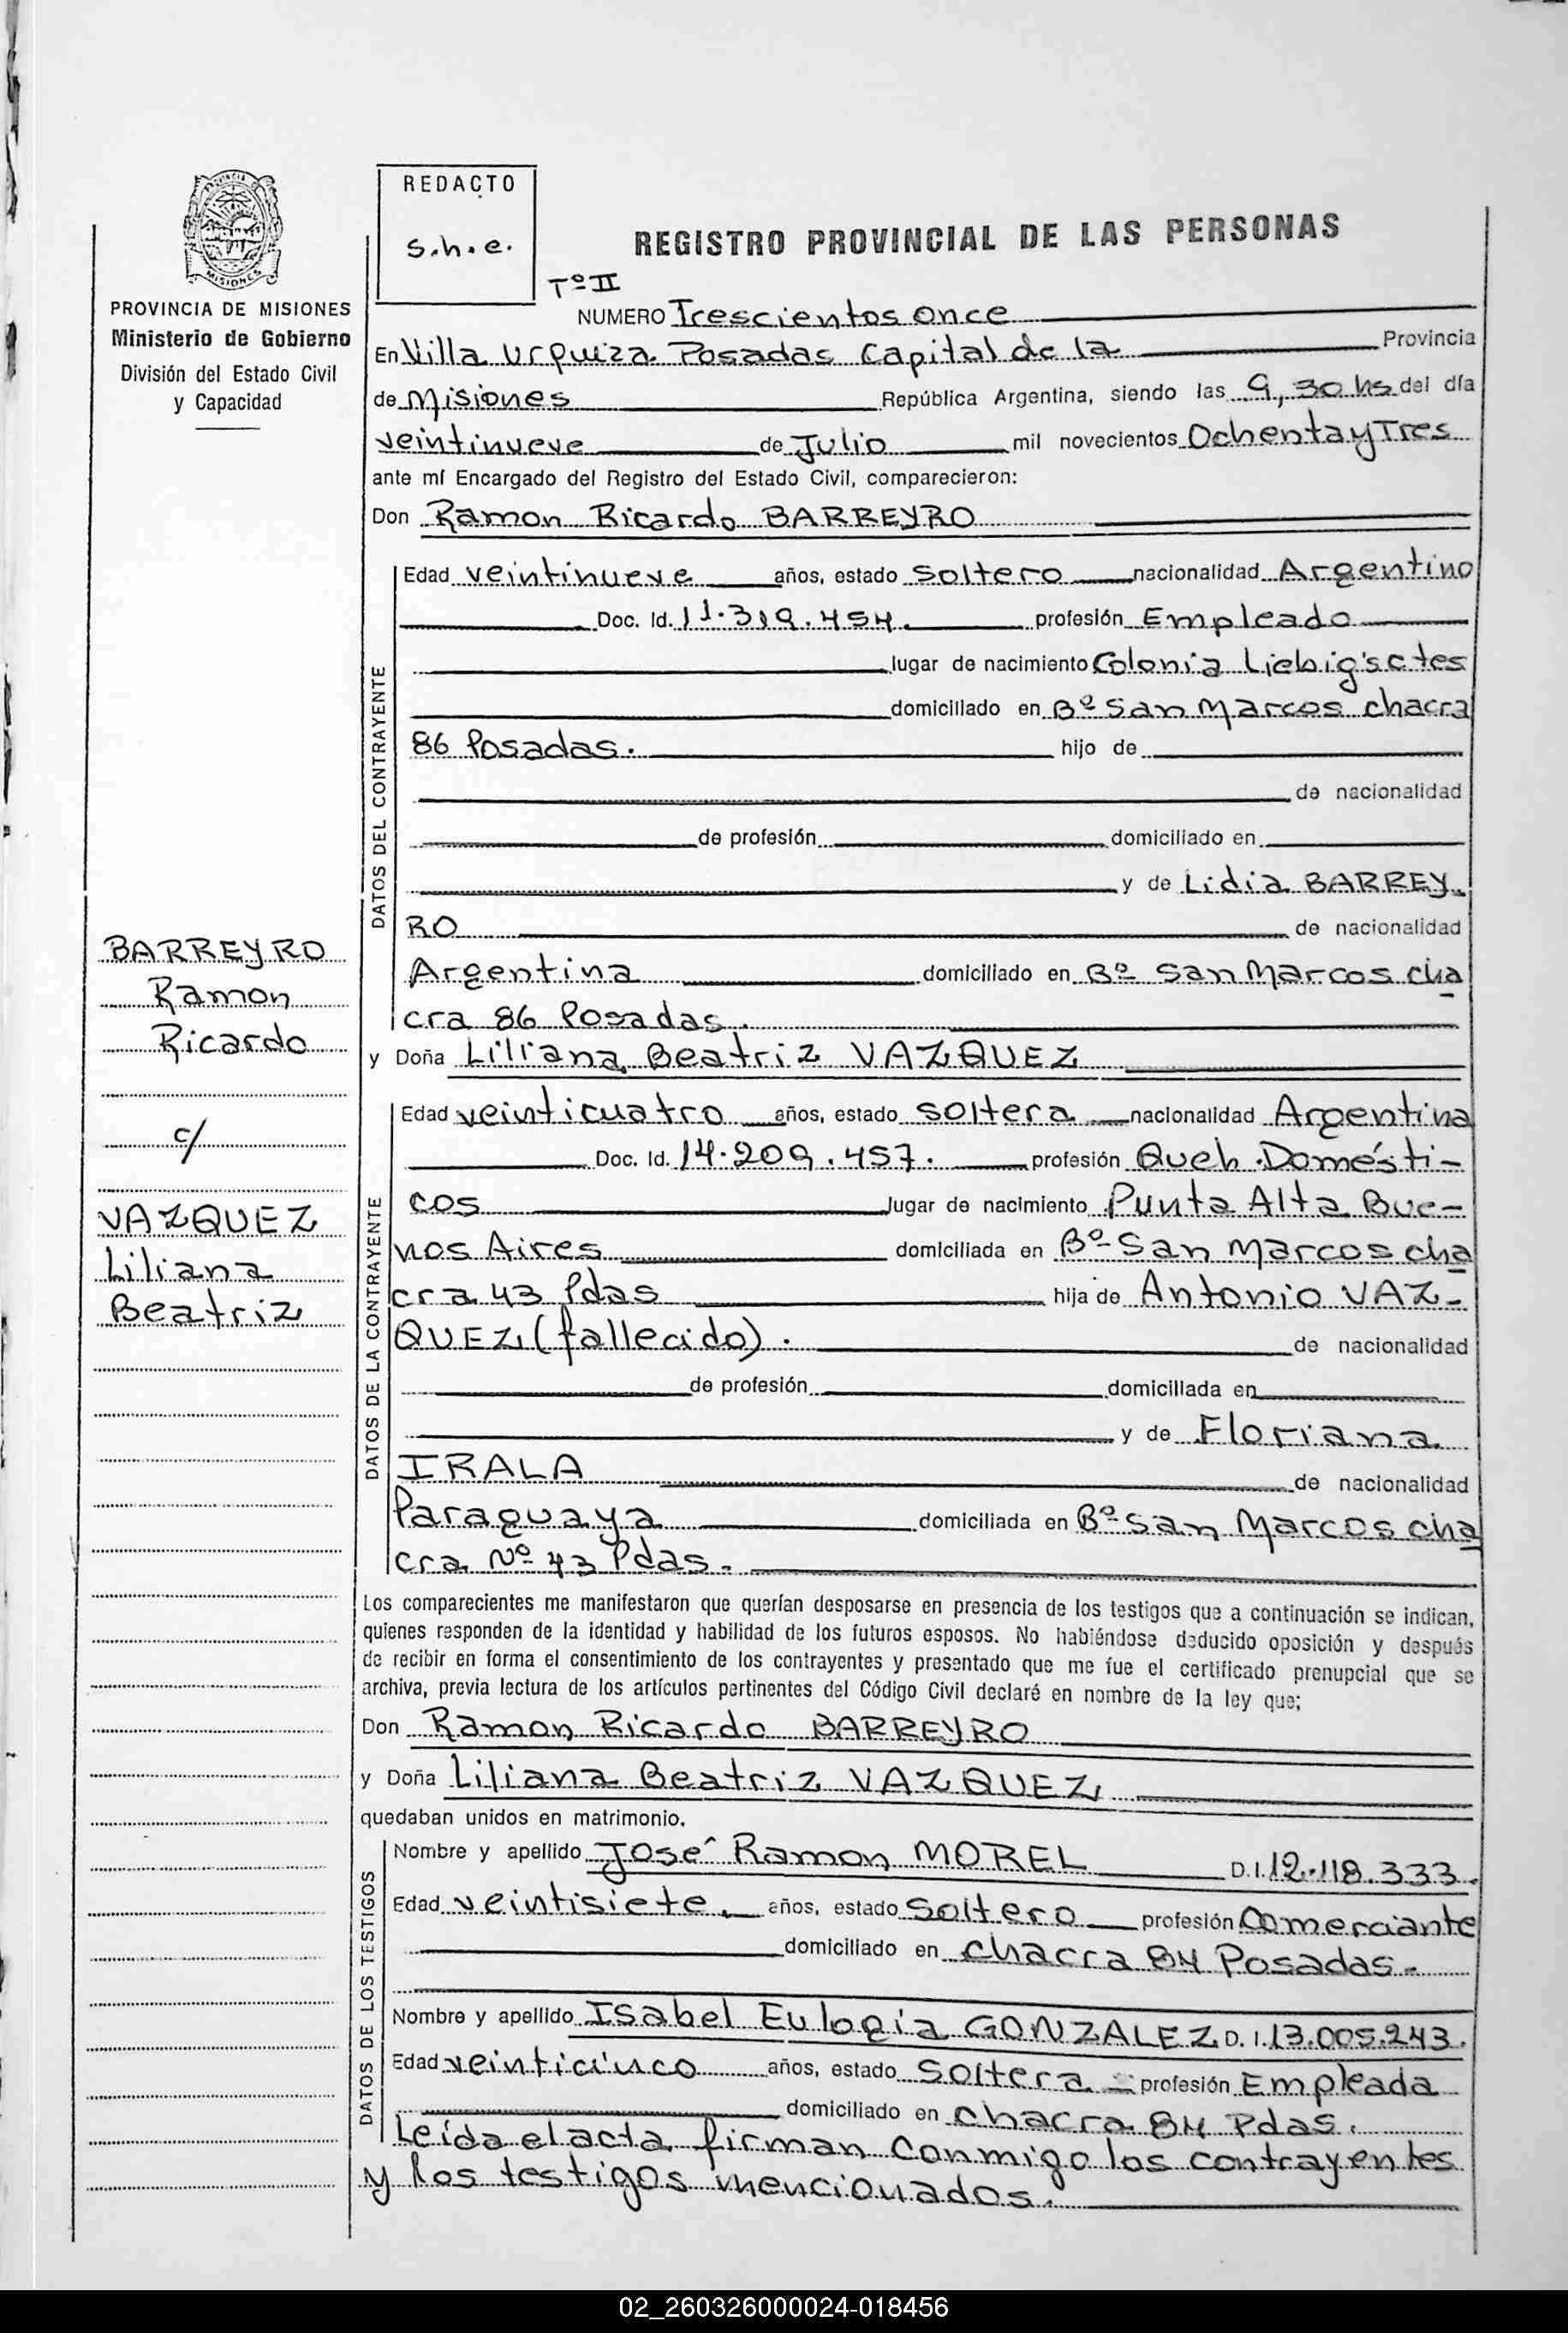 REDACTO
s.h.e.
PROVINCIA DE MISIONES
Ministerio de Gobierno
División del Estado Civil
y Capacidad
REGISTRO PROVINCIAL DE LAS PERSONAS
Tº II
NUMERO Trescientos once
En Villa Urquiza Posadas Capital de la Provincia
de Misiones República Argentina, siendo las 9,30 hs del día
veintinueve de Julio mil novecientos Ochenta y Tres
ante mí Encargado del Registro del Estado Civil, comparecieron:
Don Ramon Ricardo BARREYRO
DATOS DEL CONTRAYENTE
Edad veintinueve años, estado soltero nacionalidad Argentino
Doc. Id. 11.319.454. profesión Empleado
lugar de nacimiento Colonia Liebig's ctes
domiciliado en Bº San Marcos chacra
86 Posadas. hijo de
de nacionalidad
de profesión domiciliado en
y de Lidia BARREY
RO de nacionalidad
Argentina domiciliado en Bº San Marcos cha
cra 86 Posadas.
y Doña Liliana Beatriz VAZQUEZ
DATOS DE LA CONTRAYENTE
Edad veinticuatro años, estado soltera nacionalidad Argentina
Doc. Id. 14.209.457. profesión Queh. Domésti-
cos lugar de nacimiento Punta Alta Bue-
nos Aires domiciliada en Bº San Marcos cha
cra 43 Pdas hija de Antonio VAZ-
QUEZ (fallecido). de nacionalidad
de profesión domiciliada en
y de Floriana
IRALA de nacionalidad
Paraguaya domiciliada en Bº San Marcos cha
cra Nº 43 Pdas.
BARREYRO
Ramon
Ricardo
c/
VAZQUEZ
Liliana
Beatriz
Los comparecientes me manifestaron que querían desposarse en presencia de los testigos que a continuación se indican,
quienes responden de la identidad y habilidad de los futuros esposos. No habiéndose deducido oposición y después
de recibir en forma el consentimiento de los contrayentes y presentado que me fue el certificado prenupcial que se
archiva, previa lectura de los artículos pertinentes del Código Civil declaré en nombre de la ley que;
Don Ramon Ricardo BARREYRO
y Doña Liliana Beatriz VAZQUEZ
quedaban unidos en matrimonio.
DATOS DE LOS TESTIGOS
Nombre y apellido José Ramon MOREL D.I. 12.118.333.
Edad veintisiete. años, estado Soltero profesión Comerciante
domiciliado en chacra 84 Posadas.
Nombre y apellido Isabel Eulogia GONZALEZ D. I. 13.005.243.
Edad veinticinco años, estado Soltera profesión Empleada
domiciliado en chacra 84 Pdas.
Leída el acta firman conmigo los contrayentes
y los testigos mencionados.
02_260326000024-018456